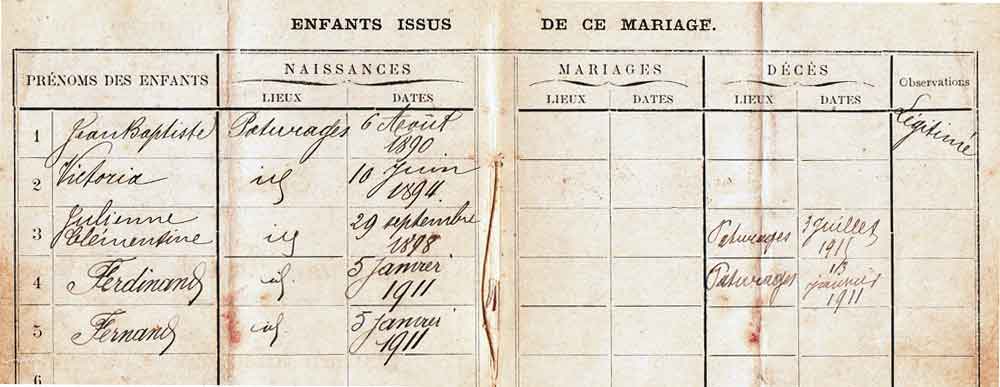 ENFANTS ISSUS DE CE MARIAGE.
PRÉNOMS DES ENFANTS NAISSANCES MARIAGES DÉCÈS Observations
LIEUX DATES LIEUX DATES LIEUX DATES
1 Jean Baptiste Paturages 6 Août 1890 Légitimé
2 Victoria id 10 Juin 1894
3 Julienne Clémentine id 29 septembre 1898 Paturages 3 Juillet
4 Ferdinand id. 5 Janvier 1911 Paturages 13 janvier 1911
5 Fernand id. 5 Janvier 1911
6